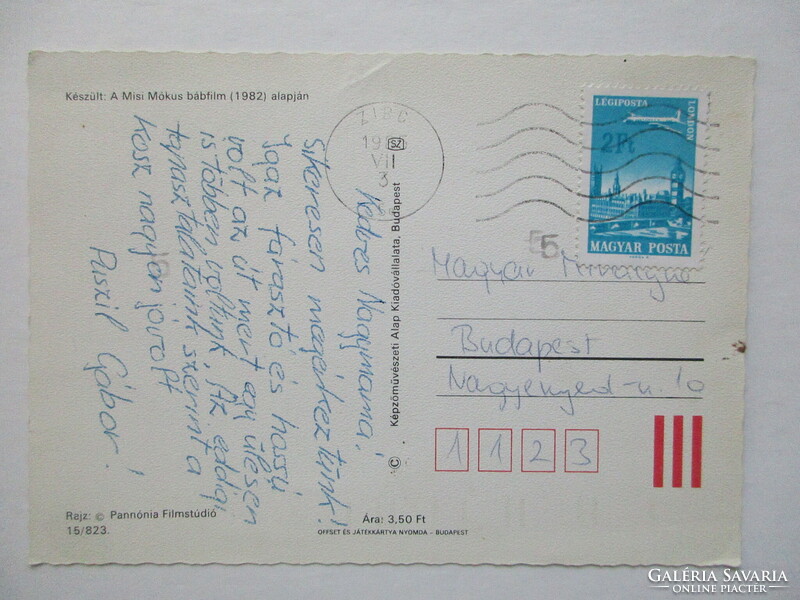 Készült: A Misi Mókus bábfilm (1982) alapján
ZIRC
VII
3
SZ
LÉGIPOSTA
LONDON
2 Ft
MAGYAR POSTA
55
Kedves Nagymama!
Sikeresen megérkeztünk!
Igaz fárasztó és hosszú
volt az út mert egy ülésen
is többen voltunk. Az eddigi
tapasztalataink szerint a
koszt nagyon jó volt
Puszil Gábor!
© Képzőművészeti Alap Kiadóvállalata, Budapest
Magyar
Budapest
Nagyenyed-u. 10
1 1 2 3
Rajz: © Pannónia Filmstúdió
15/823.
Ára: 3,50 Ft
OFFSET ÉS JÁTÉKKÁRTYA NYOMDA – BUDAPEST
GALÉRIA SAVARIA
ONLINE PIACTÉR